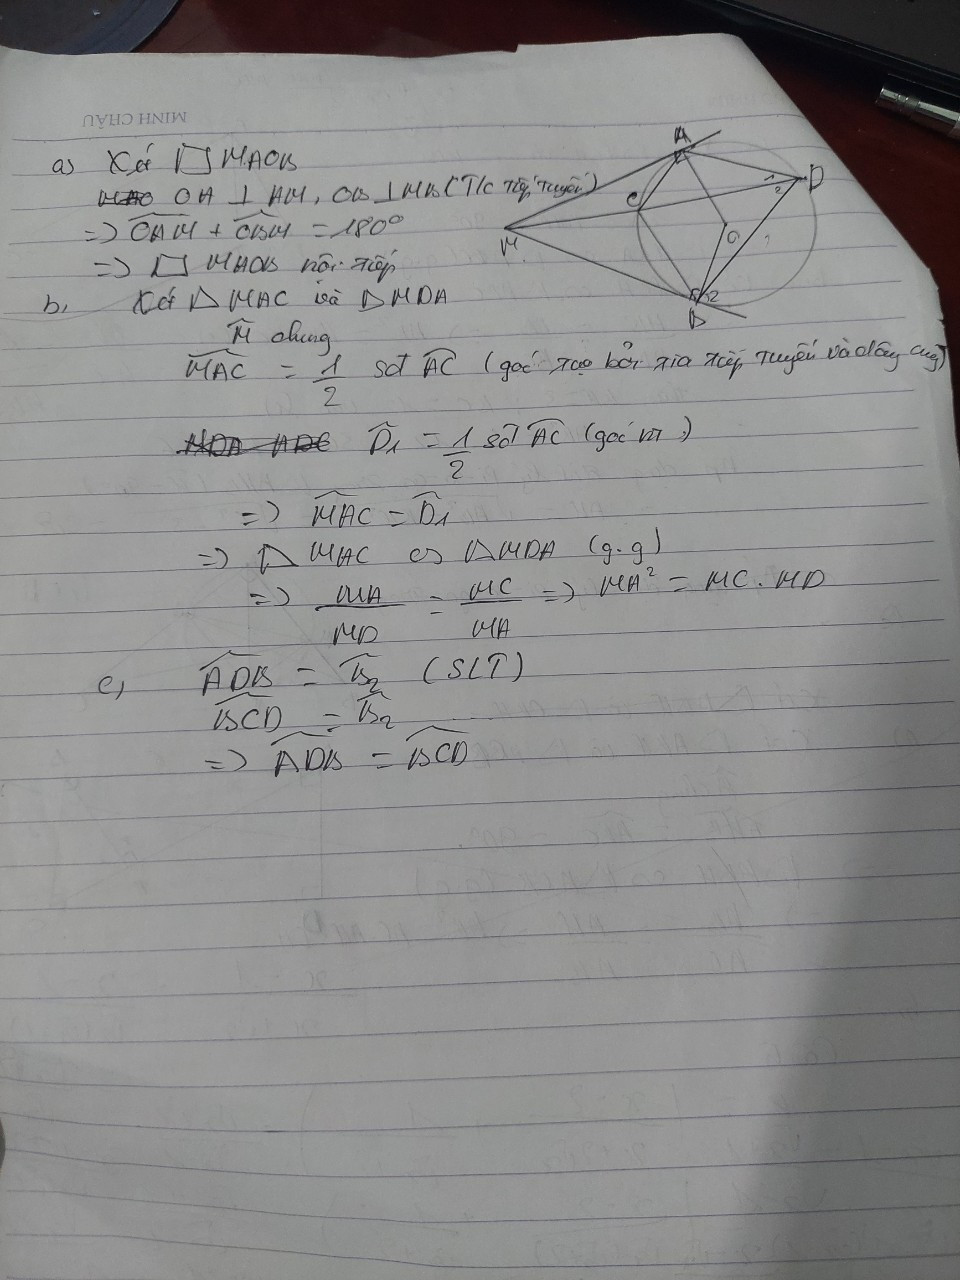 MINH CHÂU
a) Xét □ MAOB
OA ⊥ AM, OB ⊥ MB (T/c tiếp tuyến)
=> OAM + OBM = 180°
=> □ MAOB nội tiếp
b, Xét △ MAC và △ MDA
M chung
MAC = 1/2 sđ AC (góc tạo bởi tia tiếp tuyến và dây cung)
D1 = 1/2 sđ AC (góc nt)
=> MAC = D1
=> △ MAC ∽ △ MDA (g.g)
=> MA/MD = MC/MA => MA² = MC . MD
c, ADB = B2 (SLT)
BCD = B2
=> ADB = BCD
A
1
2
D
C
M
O
1
2
B